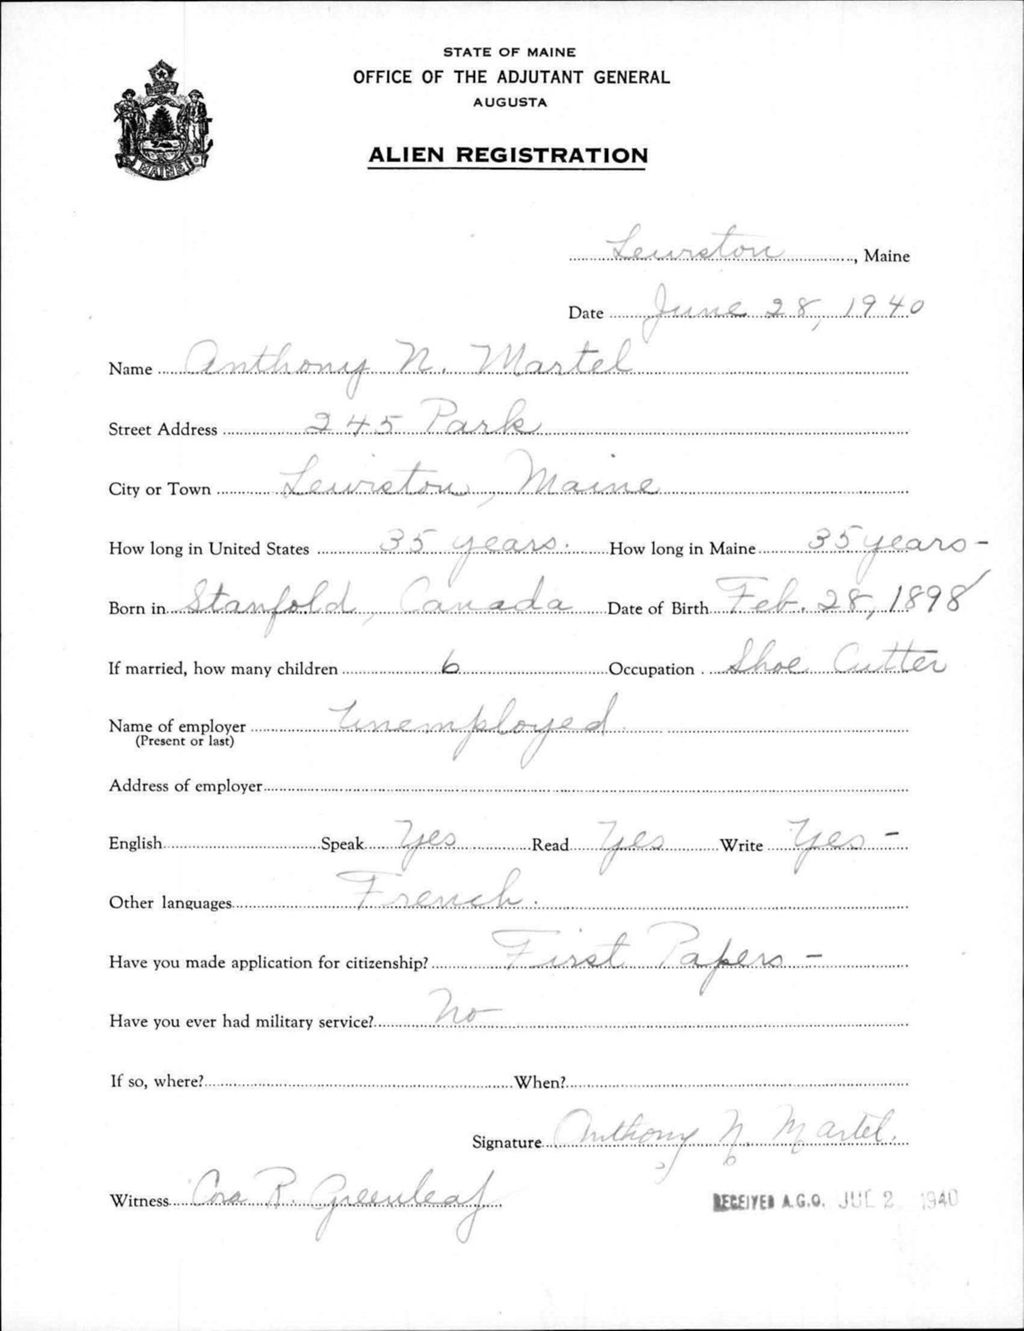 STATE OF MAINE
OFFICE OF THE ADJUTANT GENERAL
AUGUSTA
ALIEN REGISTRATION
MAINE
Lewiston, Maine
Date June 28, 1940
Name Anthony N. Martel
Street Address 245 Park
City or Town Lewiston, Maine
How long in United States 35 years. How long in Maine 35 years-
Born in Stanfold, Canada Date of Birth Feb. 28, 1898
If married, how many children 6 Occupation Shoe Cutter
Name of employer Unemployed
(Present or last)
Address of employer
English Speak Yes Read Yes Write Yes-
Other languages French.
Have you made application for citizenship? First Papers-
Have you ever had military service? No
If so, where? When?
Signature Anthony N. Martel.
Witness Cora R. Greenleaf
RECEIVED A.G.O. JUL 2 1940